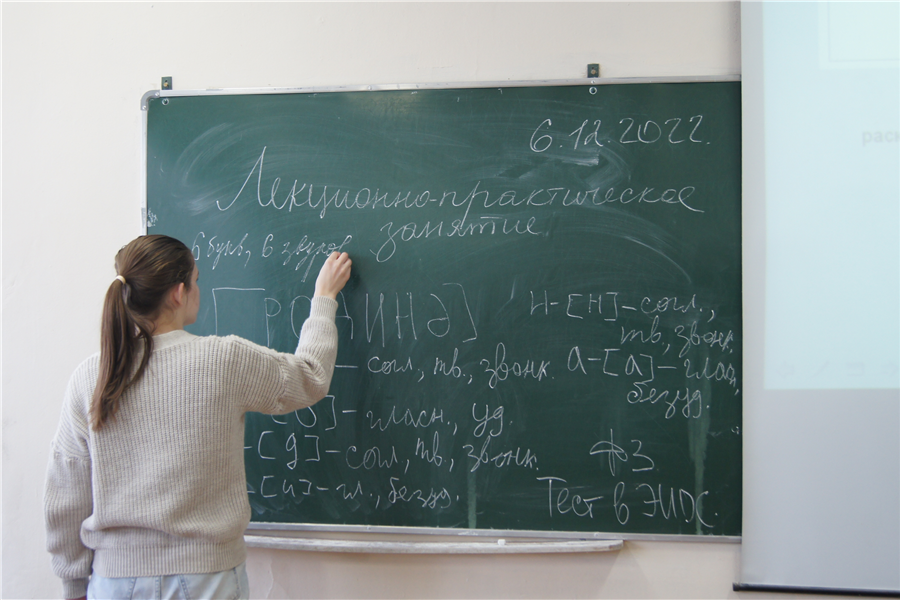 6.12.2022.
Лекционно-практическое
занятие
6 букв, 6 звуков
РОДИНə]
н-[н]-согл.,
тв, звонк.
- согл, тв., звонк.
а-[а]-глас,
безуд.
]-гласн., уд.
-[д]-согл, тв., звонк.
[и]-гл., безуд.
ФЗ
Тест в ЭИОС.
раск